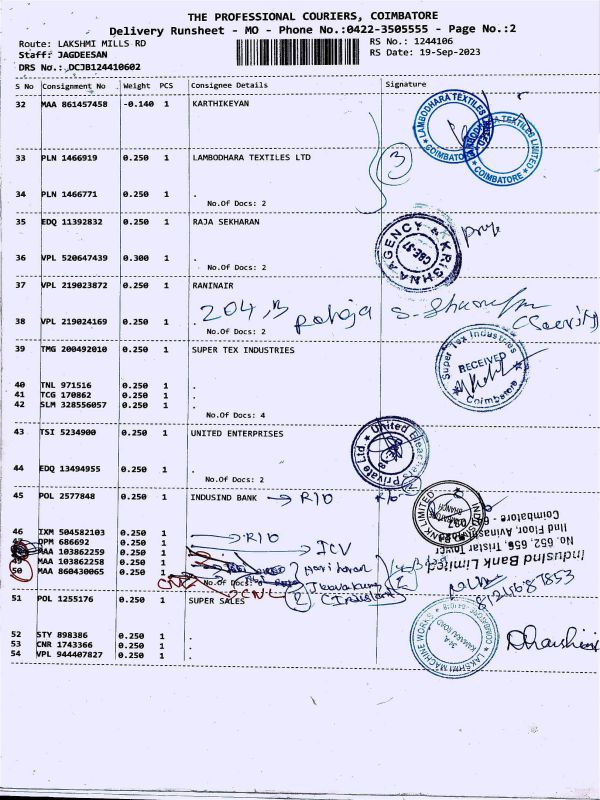 THE PROFESSIONAL COURIERS, COIMBATORE
Delivery Runsheet - MO - Phone No.:0422-3505555 - Page No.:2
Route: LAKSHMI MILLS RD
RS No.: 1244106
Staff: JAGDEESAN
RS Date: 19-Sep-2023
DRS No.: DCJB124410602
S No Consignment No Weight PCS Consignee Details Signature
32 MAA 861457458 -0.140 1 KARTHIKEYAN
LAMBODHARA TEXTILES LIMITED
COIMBATORE
33 PLN 1466919 0.250 1 LAMBODHARA TEXTILES LTD
3
34 PLN 1466771 0.250 1 .
No.Of Docs: 2
35 EDQ 11392832 0.250 1 RAJA SEKHARAN
KRISHNA AGENCY
CBE-37
36 VPL 520647439 0.300 1 .
No.Of Docs: 2
37 VPL 219023872 0.250 1 RANINAIR
204, B pooja
38 VPL 219024169 0.250 1 .
No.Of Docs: 2
39 TMG 200492010 0.250 1 SUPER TEX INDUSTRIES
Super Tex Industries
RECEIVED
Coimbatore
40 TNL 971516 0.250 1 .
41 TCG 170862 0.250 1 .
42 SLM 328556057 0.250 1 .
No.Of Docs: 4
43 TSI 5234900 0.250 1 UNITED ENTERPRISES
44 EDQ 13494955 0.250 1 .
No.Of Docs: 2
45 POL 2577848 0.250 1 INDUSIND BANK → RIO
46 IXM 504582103 0.250 1 . RIO
47 DPM 686692 0.250 1 ICV
48 MAA 103862259 0.250 1 Hariharan
49 MAA 103862258 0.250 1
50 MAA 860430065 0.250 1
No.Of Docs:
CNL
IndusInd Bank Limited
No. 652-656, Tristar Tower
IInd Floor, Avinashi
Coimbatore - 6
51 POL 1255176 0.250 1 SUPER SALES
LAKSHMI MACHINE WORKS
34-A
KAMARAJ ROAD
52 STY 898386 0.250 1 .
53 CNR 1743366 0.250 1 .
54 VPL 944407827 0.250 1 .
Dharshini